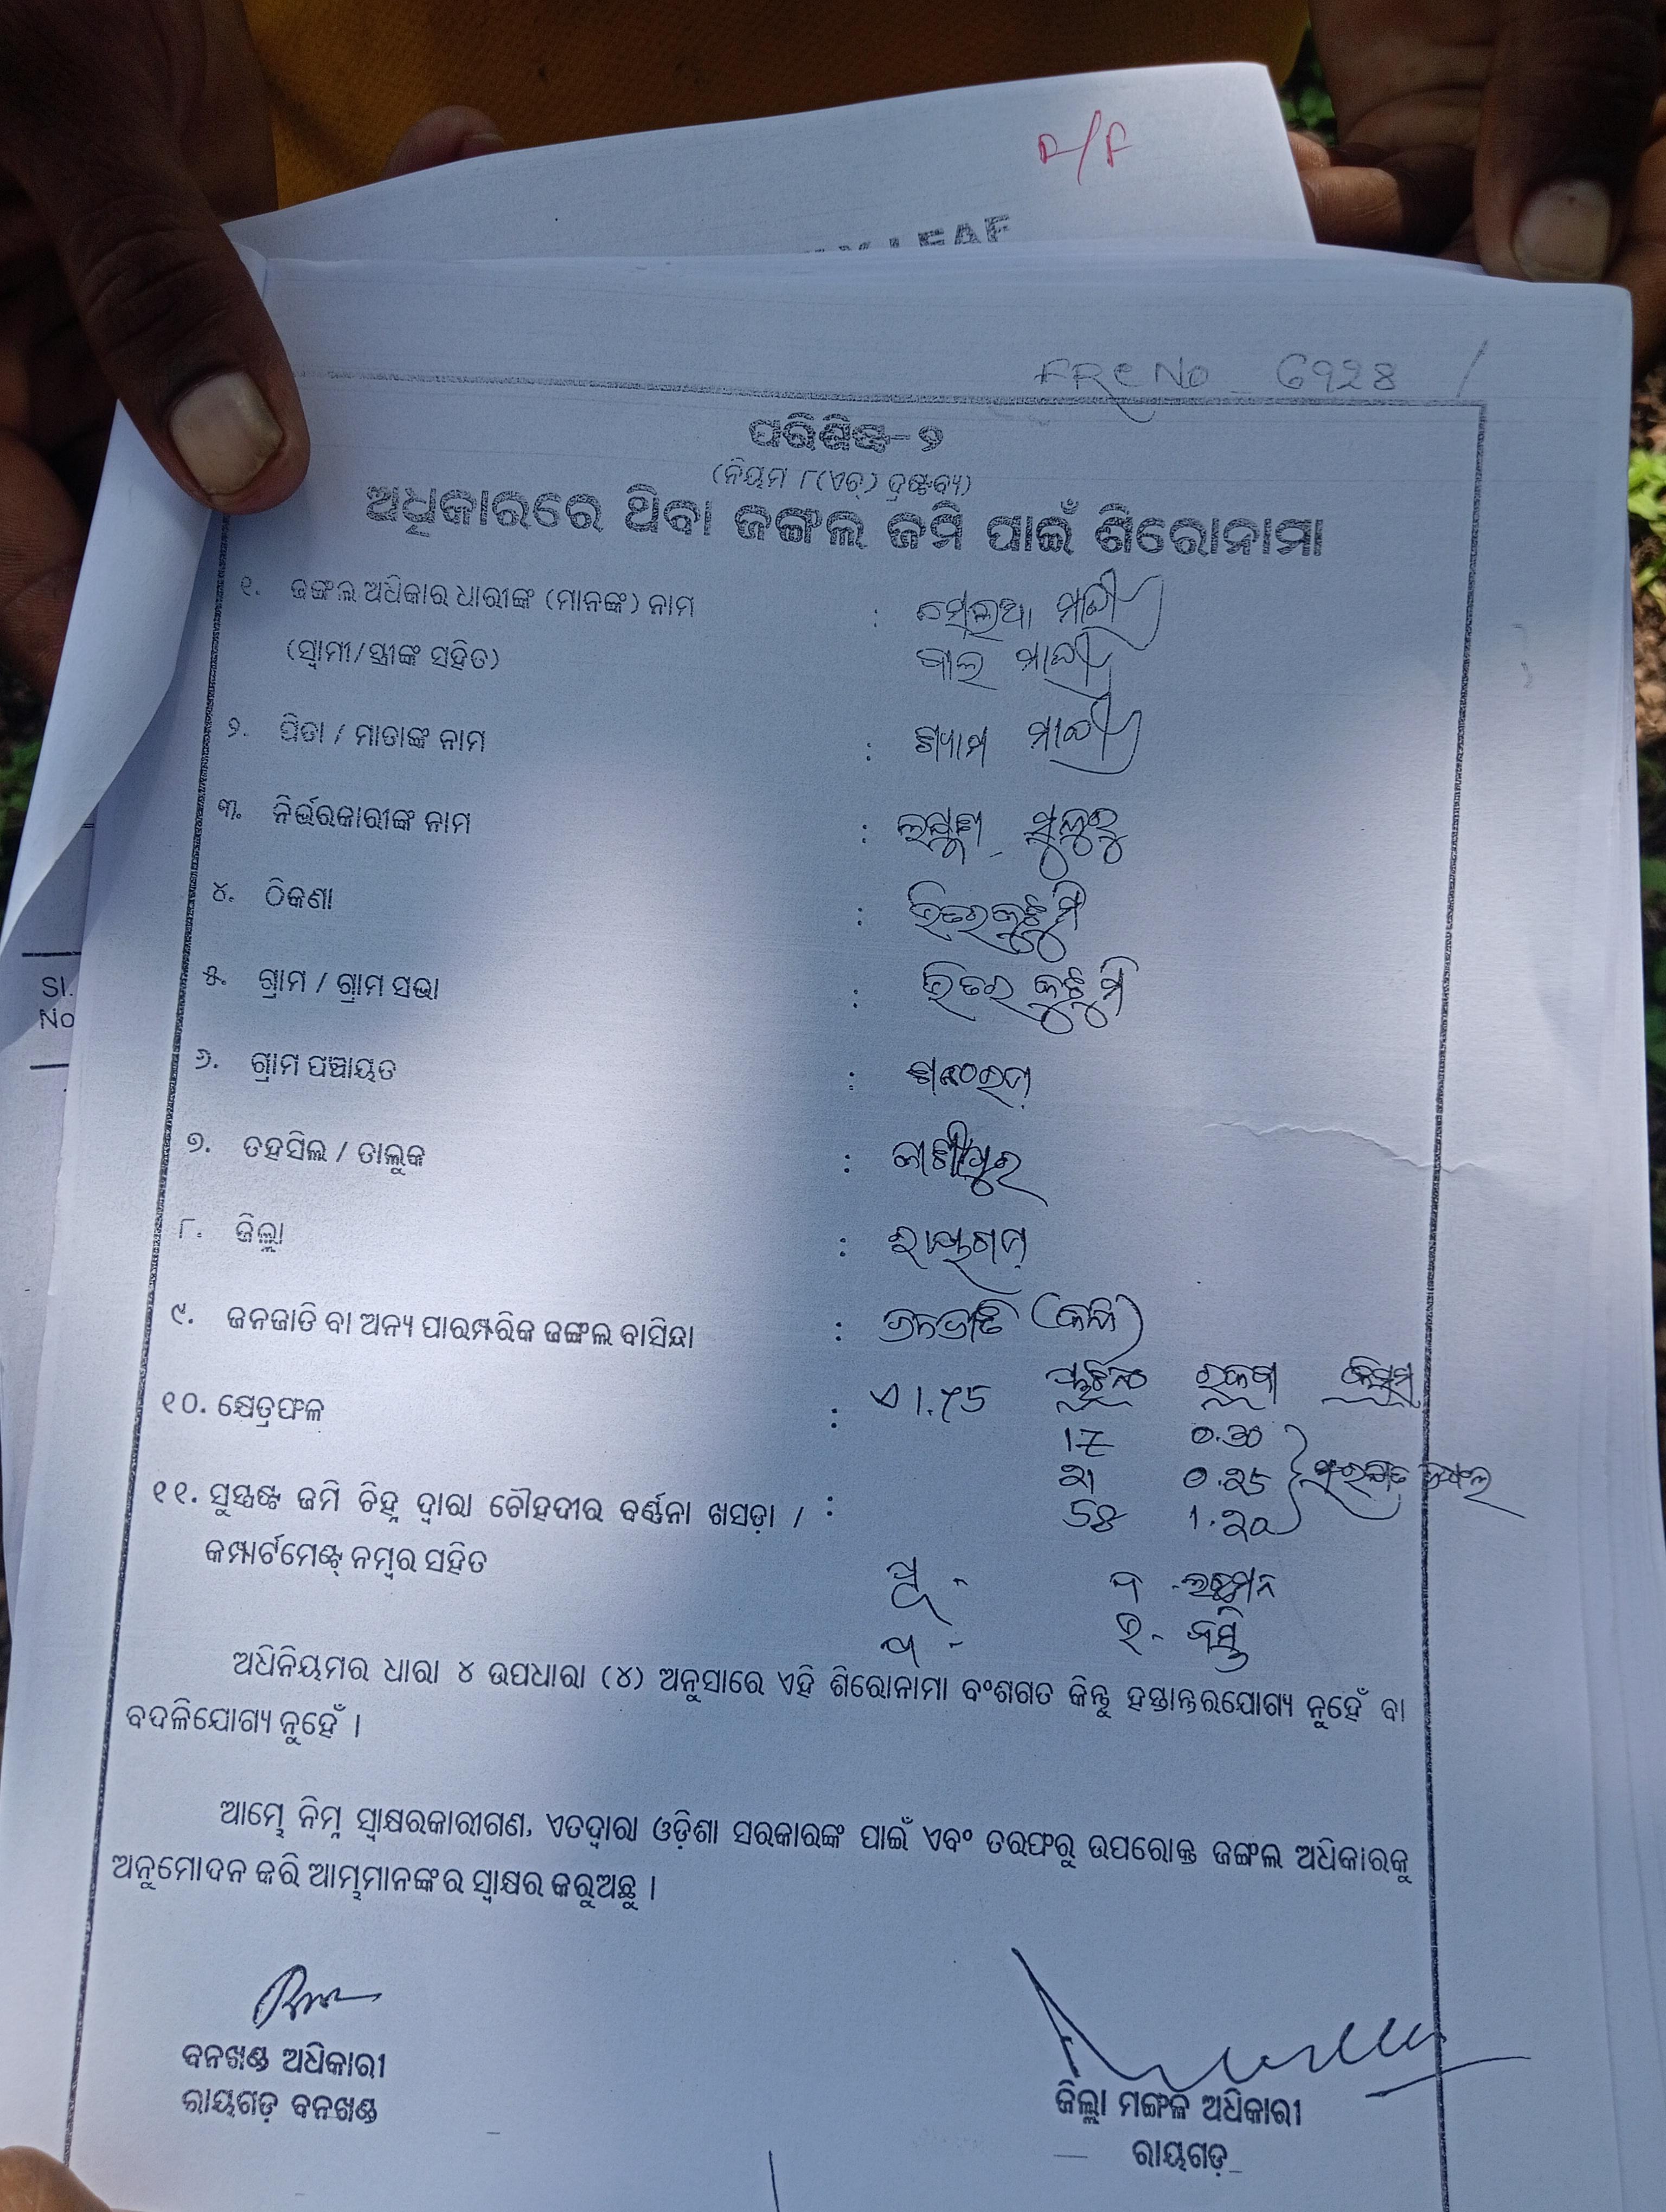 F/F
LEAF
FRC No 6928
ପରିଶିଷ୍ଟ-୨
(ନିୟମ ୮(ଏଚ୍) ଦ୍ରଷ୍ଟବ୍ୟ)
ଅଧିକାରରେ ଥିବା ଜଙ୍ଗଲ ଜମି ପାଇଁ ଶିରୋନାମା
୧. ଜଙ୍ଗଲ ଅଧିକାର ଧାରୀଙ୍କ (ମାନଙ୍କ) ନାମ : ମାଝୀ
(ସ୍ୱାମୀ/ସ୍ତ୍ରୀଙ୍କ ସହିତ) ମାଝୀ
୨. ପିତା / ମାତାଙ୍କ ନାମ : ଶ୍ୟାମ ମାଝୀ
୩. ନିର୍ଭରକାରୀଙ୍କ ନାମ :
୪. ଠିକଣା :
୫. ଗ୍ରାମ / ଗ୍ରାମ ସଭା : ଭିତର
୬. ଗ୍ରାମ ପଞ୍ଚାୟତ :
୭. ତହସିଲ / ତାଲୁକ : କାଶୀପୁର
୮. ଜିଲ୍ଲା : ରାୟଗଡ଼
୯. ଜନଜାତି ବା ଅନ୍ୟ ପାରମ୍ପରିକ ଜଙ୍ଗଲ ବାସିନ୍ଦା : ଜନଜାତି
୧୦. କ୍ଷେତ୍ରଫଳ : ଏ 1.75 ପ୍ଲଟନଂ ରକବା କିସମ
17 0.30
21 0.25 ଜଙ୍ଗଲ
୧୧. ସୁସ୍ପଷ୍ଟ ଜମି ଚିହ୍ନ ଦ୍ୱାରା ଚୌହଦୀର ବର୍ଣ୍ଣନା ଖସଡ଼ା / : 58 1.20
କମ୍ପାର୍ଟମେଣ୍ଟ୍ ନମ୍ବର ସହିତ ପୂ - ଦ - ଲଛମନ
ପ - ଉ -
ଅଧିନିୟମର ଧାରା ୪ ଉପଧାରା (୪) ଅନୁସାରେ ଏହି ଶିରୋନାମା ବଂଶଗତ କିନ୍ତୁ ହସ୍ତାନ୍ତରଯୋଗ୍ୟ ନୁହେଁ ବା
ବଦଳିଯୋଗ୍ୟ ନୁହେଁ ।
ଆମ୍ଭେ ନିମ୍ନ ସ୍ୱାକ୍ଷରକାରୀଗଣ, ଏତଦ୍ୱାରା ଓଡ଼ିଶା ସରକାରଙ୍କ ପାଇଁ ଏବଂ ତରଫରୁ ଉପରୋକ୍ତ ଜଙ୍ଗଲ ଅଧିକାରକୁ
ଅନୁମୋଦନ କରି ଆମ୍ଭମାନଙ୍କର ସ୍ୱାକ୍ଷର କରୁଅଛୁ ।
ବନଖଣ୍ଡ ଅଧିକାରୀ
ରାୟଗଡ଼ ବନଖଣ୍ଡ
ଜିଲ୍ଲା ମଙ୍ଗଳ ଅଧିକାରୀ
ରାୟଗଡ଼
Sl.
No